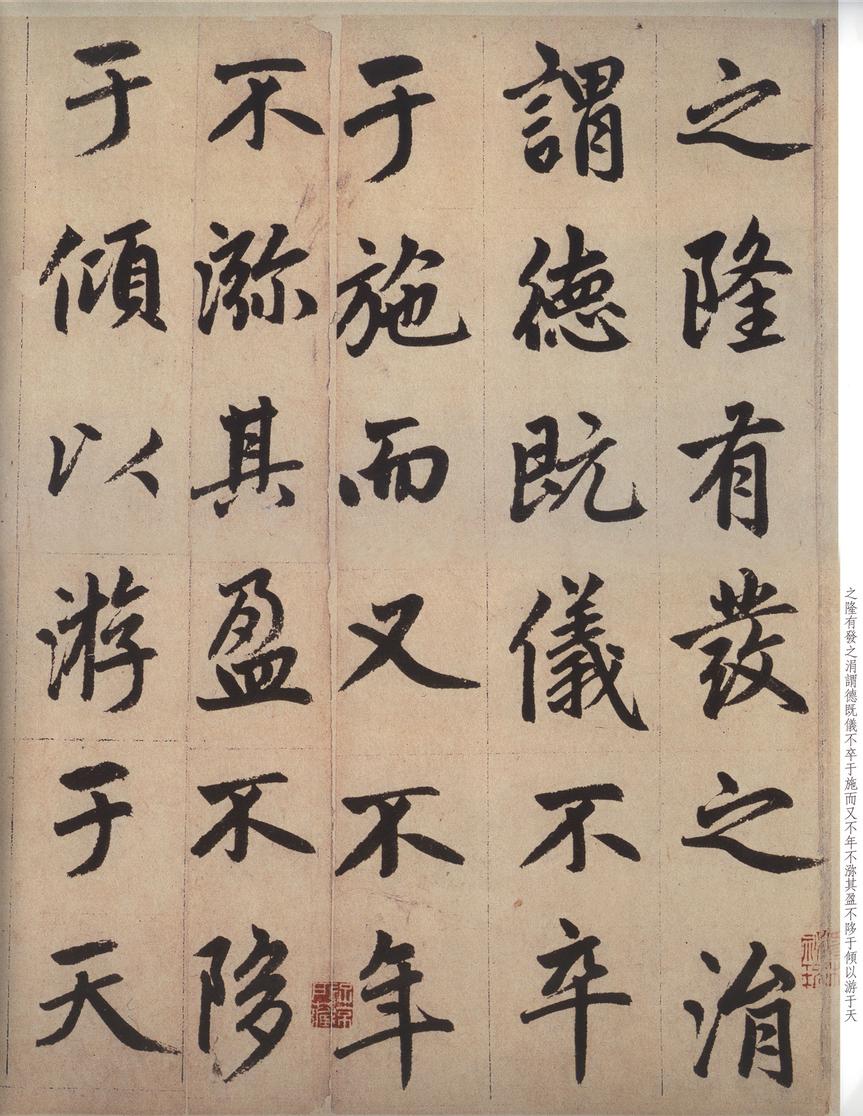 之隆有發之涓
謂德既儀不卒
于施而又不年
不瀰其盈不陊
于傾以游于天
之隆有發之涓謂德既儀不卒于施而又不年不瀰其盈不陊于傾以游于天